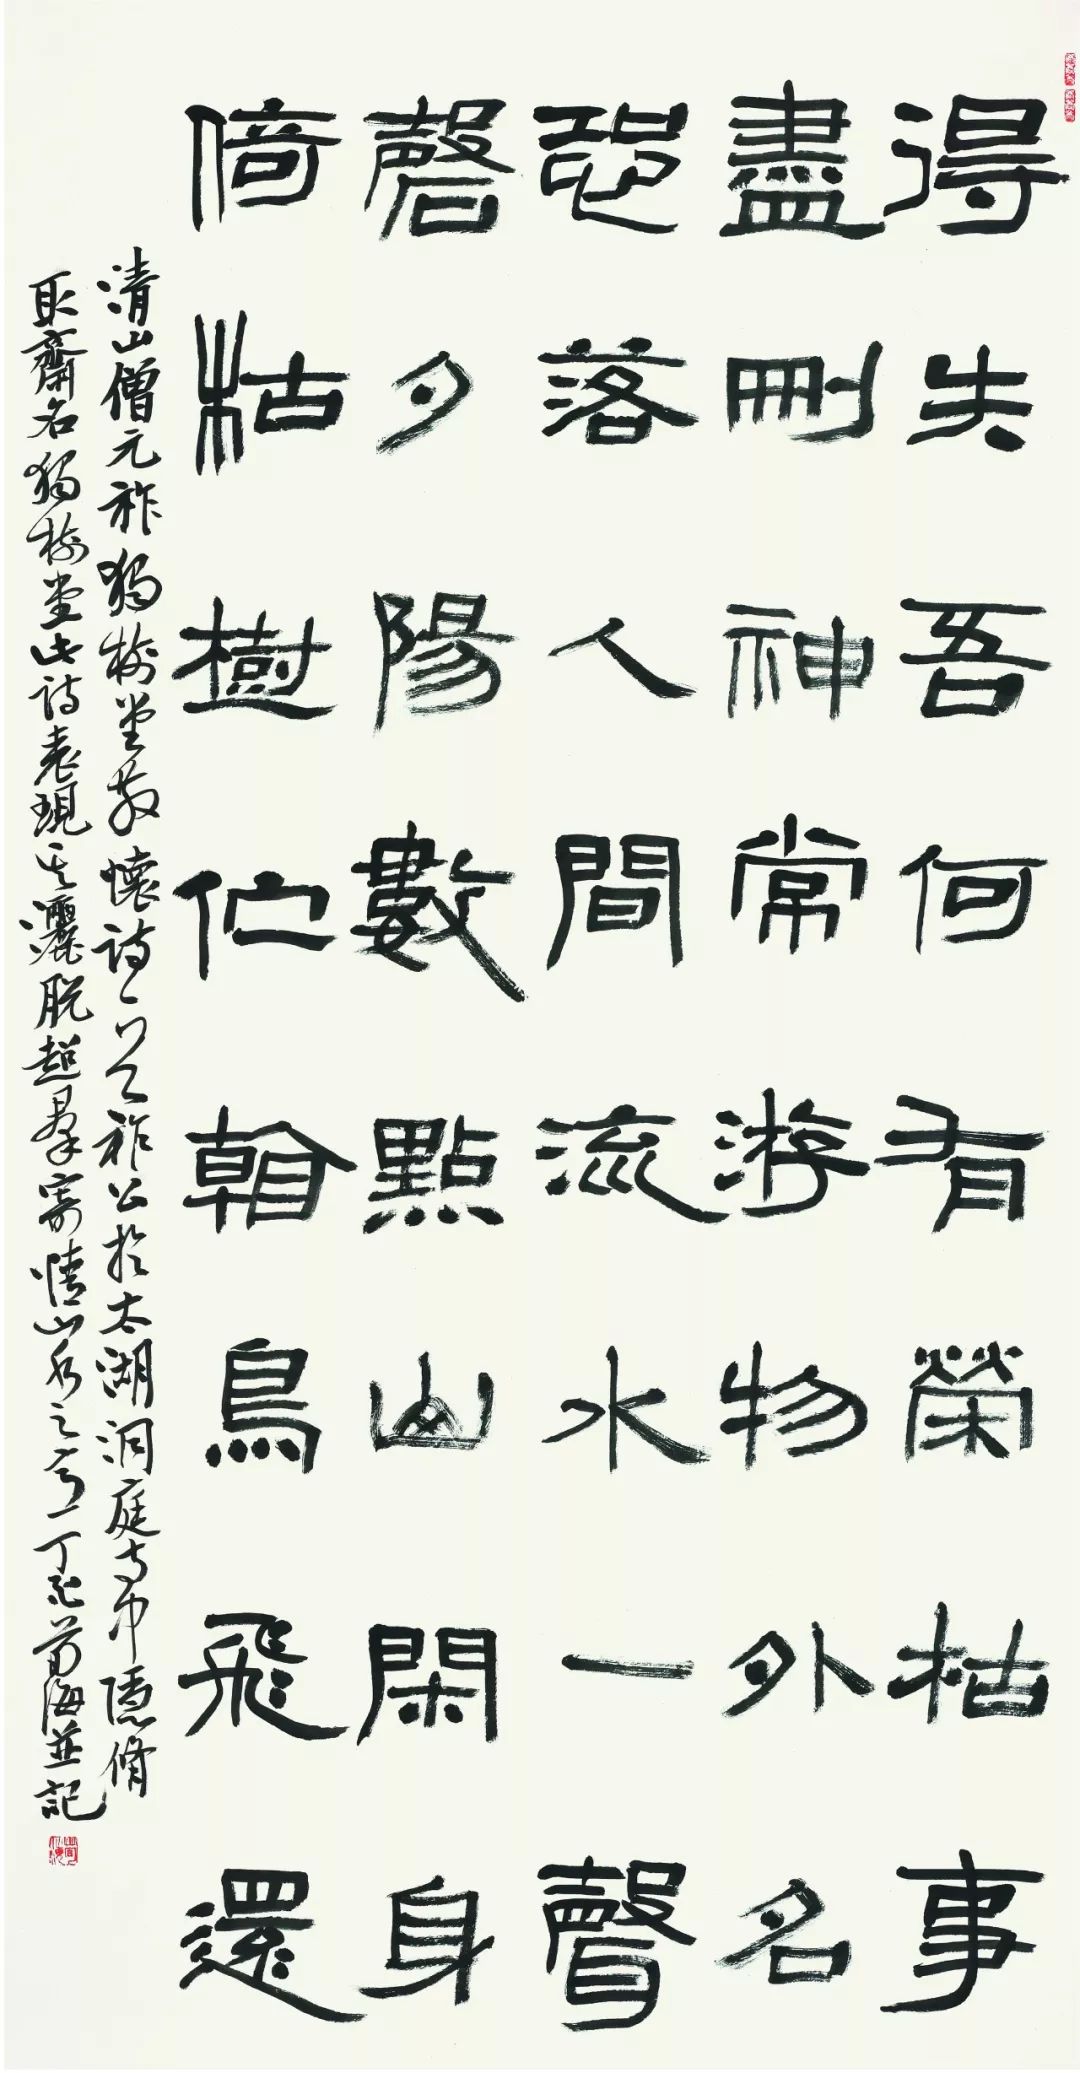 得失吾何有榮枯事
盡刪神常游物外名
恐落人間流水一聲
磬夕陽數點山閑身
倚枯樹伫看鳥飛還
清山僧元祚獨樹堂散懷詩一首祚公於太湖洞庭寺中隱脩
取齋名獨樹堂此詩表現其灑脫超羣寄情山水之意丁海並記